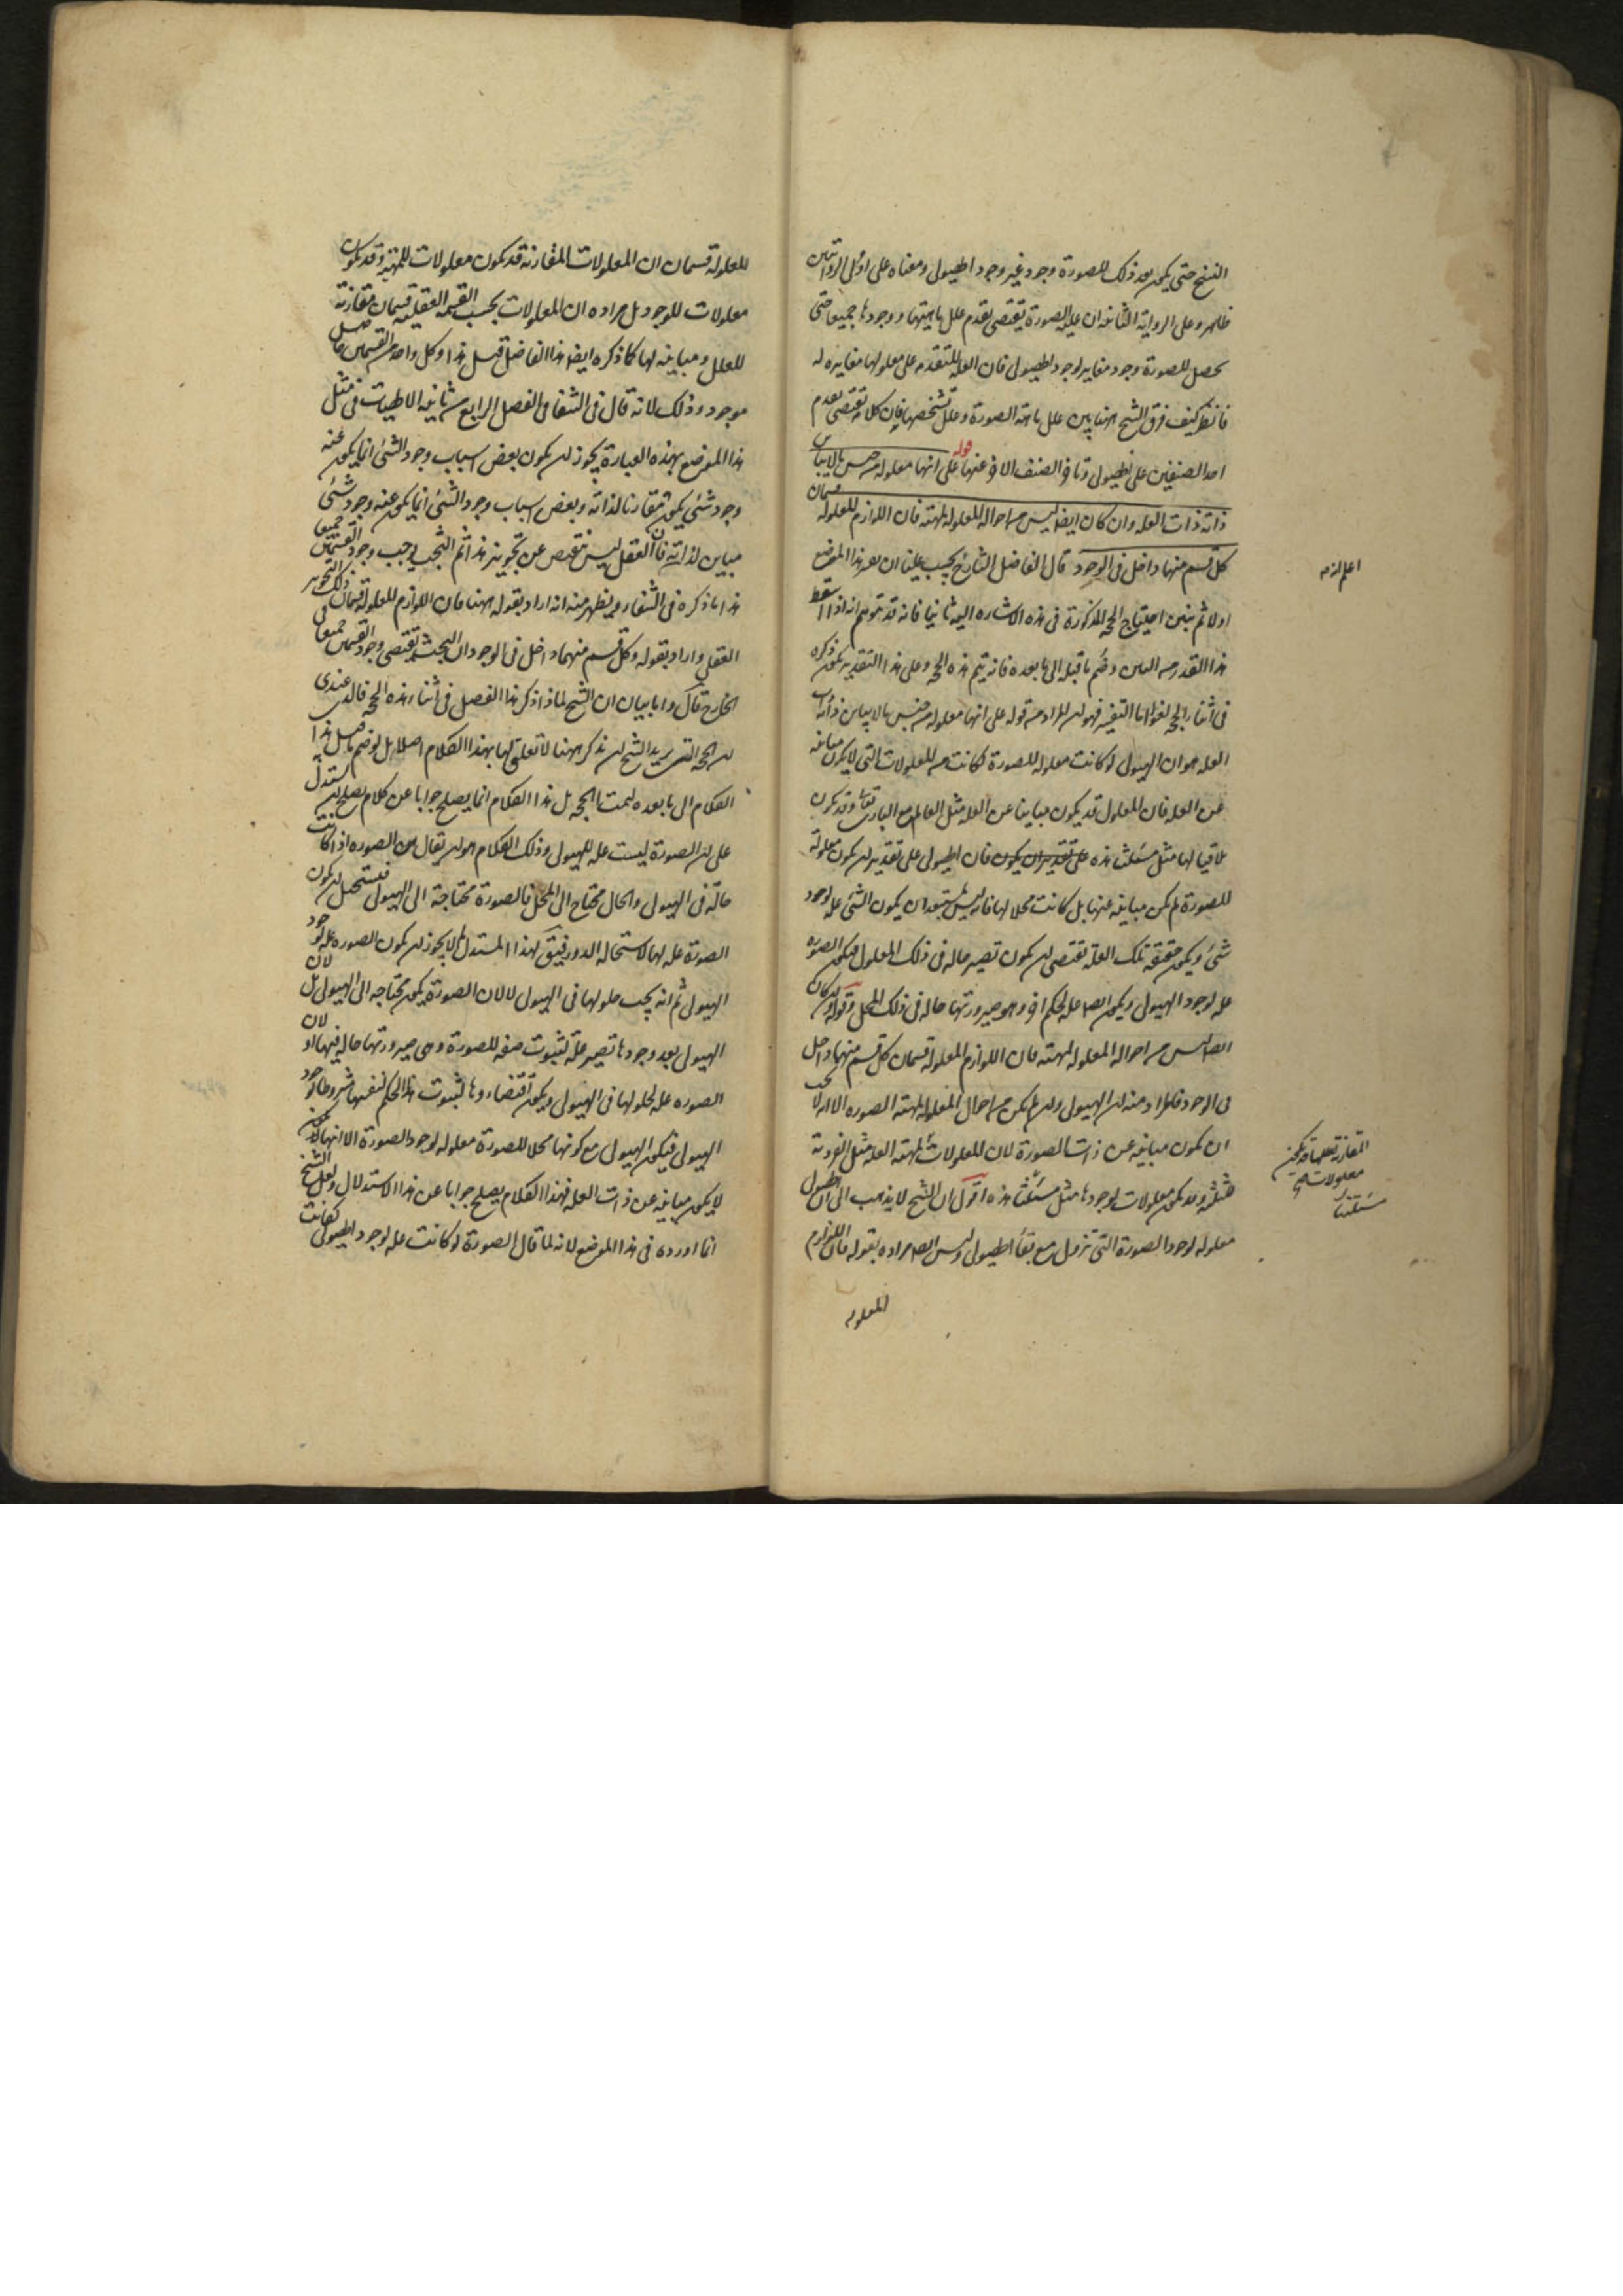 النسخ حتى يكون بعد ذلك للصورة وجود غير وجود الهيولى ومعناه على اولى الروايتين
ظاهر وعلى الرواية الثانية ان علية الصورة يقتضى تقدم علل ماهيتها ووجودها جميعا حتى
يحصل للصورة وجود مغاير لوجود الهيولى فان العلة المتقدمة على معلولها مغايرة له
فانظر كيف فرق الشيخ ههنا بين علل ماهية الصورة وعلل تشخصها فان كلامه يقتضى تقدم
احد الصنفين على الهيولى وتاخر الصنف الاخر عنها قوله على انها معلولة من جنس ما لا يباين
ذاته ذات العلة وان كان ايضا ليس من احواله المعلولة لمهيته فان اللوازم المعلولة قسمان
كل قسم منها داخل فى الوجود قال الفاضل الشارح يجب علينا ان نفسر هذا الموضع
اولا ثم نبين احتياج الحجة المذكورة فى هذه الاشارة اليه ثانيا فانه قد يتوهم انه اذا اسقط
هذا القدر من البين وضم ما قبله الى ما بعده فانه يتم هذه الحجة وعلى هذا التقدير يكون ذكره
فى اثناء الحجة لغوا اما التفسير فهو ان المراد من قوله على انها معلولة من جنس ما لا يباين ذاته ذات
العلة هو ان الهيولى لو كانت معلولة للصورة لكانت من المعلولات التى لا يكون مباينة
عن العلة فان المعلول قد يكون مباينا عن العلة مثل العالم مع البارى تعالى وقد يكون
ملاقيا لها مثل مسئلتنا هذه على تقدير ان يكون فان الهيولى على تقدير ان يكون معلولة
للصورة لم يكن مباينة عنها بل كانت محلا لها فانه ليس يستبعد ان يكون الشى علة لوجود
شئ ويكون حقيقة تلك العلة تقتضى ان يكون تصير حالة فى ذلك المعلول فيكون الصورة
علة لوجود الهيولى ويكون ايضا علة لحكم اخر وهو صيرورتها حالة فى ذلك المحل وقوله وان كان
ايضا ليس من احواله المعلولة لمهيته فان اللوازم المعلولة قسمان كل قسم منهما داخل
فى الوجود فالمراد منه ان الهيولى وان لم يكن من احوال المعلولة لمهية الصورة الا انه لا يجب
ان يكون مباينة عن ذات الصورة لان المعلولات لمهية العلة مثل الفردية
للثلثة وقد يكون معلولات لوجودها مثل مسئلتنا هذه اقول ان الشيخ لا يذهب الى ان الهيولى
معلولة لوجود الصورة التى تزول مع بقاء الهيولى وليس ايضا مراده بقوله فان اللوازم
المعلولة
اعلم ان
المقارنة لعللها قد يكون
معلولات
مسئلتنا
المعلولة قسمان ان المعلولات المقارنة قد يكون معلولات للمهية وقد يكون
معلولات للوجود بل مراده ان المعلولات بحسب القسمة العقلية قسمان مقارنة
للعلل ومباينة لها كما ذكره ايضا هذا الفاضل قبيل هذا وكل واحد من القسمين حاصل
موجود وذلك لانه قال فى الشفا فى الفصل الرابع من ثانية الالهيات فى مثل
هذا الموضع بهذه العبارة يجوز ان يكون بعض اسباب وجود الشئ انما يكون عنه
وجود شئ يكون مقارنا لذاته وبعض اسباب وجود الشئ انما يكون عنه وجود شئ
مباين لذاته فان العقل ليس ينقبض عن تجويز هذا ثم البحث يوجب وجود القسمين جميعا
هذا ما ذكره فى الشفاء ويظهر منه انه اراد بقوله ههنا فان اللوازم المعلولة قسمان ذلك التجويز
العقلى واراد بقوله وكل قسم منهما داخل فى الوجود ان البحث يقتضى وجود القسمين جميعا فى
الخارج قال واما بيان ان الشيخ لماذا ذكر هذا الفصل فى اثناء هذه الحجة فالذى عندى
ان الحجة التى يريد الشيخ ان يذكر ههنا لا تعلق لها بهذا الكلام اصلا بل لو ضم ما قبل هذا
الكلام الى ما بعده لتمت الحجة بل هذا الكلام انما يصلح جوابا عن كلام يصلح ان يستدل به
على ان الصورة ليست علة للهيولى وذلك الكلام هو ان يقال ان الصورة اذا كانت
حالة فى الهيولى والحال محتاج الى المحل فالصورة محتاجة الى الهيولى فيستحيل ان يكون
الصورة علة لها لاستحالة الدور فيق لهذا المستدل لم لا يجوز ان يكون الصورة علة لوجود
الهيولى ثم انه يجب حلولها فى الهيولى لا لان الصورة يكون محتاجة الى الهيولى بل لان
الهيولى بعد وجودها تصير علة لثبوت صفة للصورة وهى صيرورتها حالة فيها او لان
الصورة علة لحلولها فى الهيولى ويكون اقتضاءها لثبوت هذا الحكم لنفسها مشروطا بوجود
الهيولى فيكون الهيولى مع كونها محلا للصورة معلولة لوجود الصورة الا انها لا
لا يكون مباينة عن ذات العلة فهذا الكلام يصلح جوابا عن هذا الاستدلال ولعل الشيخ
انما اورده فى هذا الموضع لانه لما قال الصورة لو كانت علة لوجود الهيولى لكانت